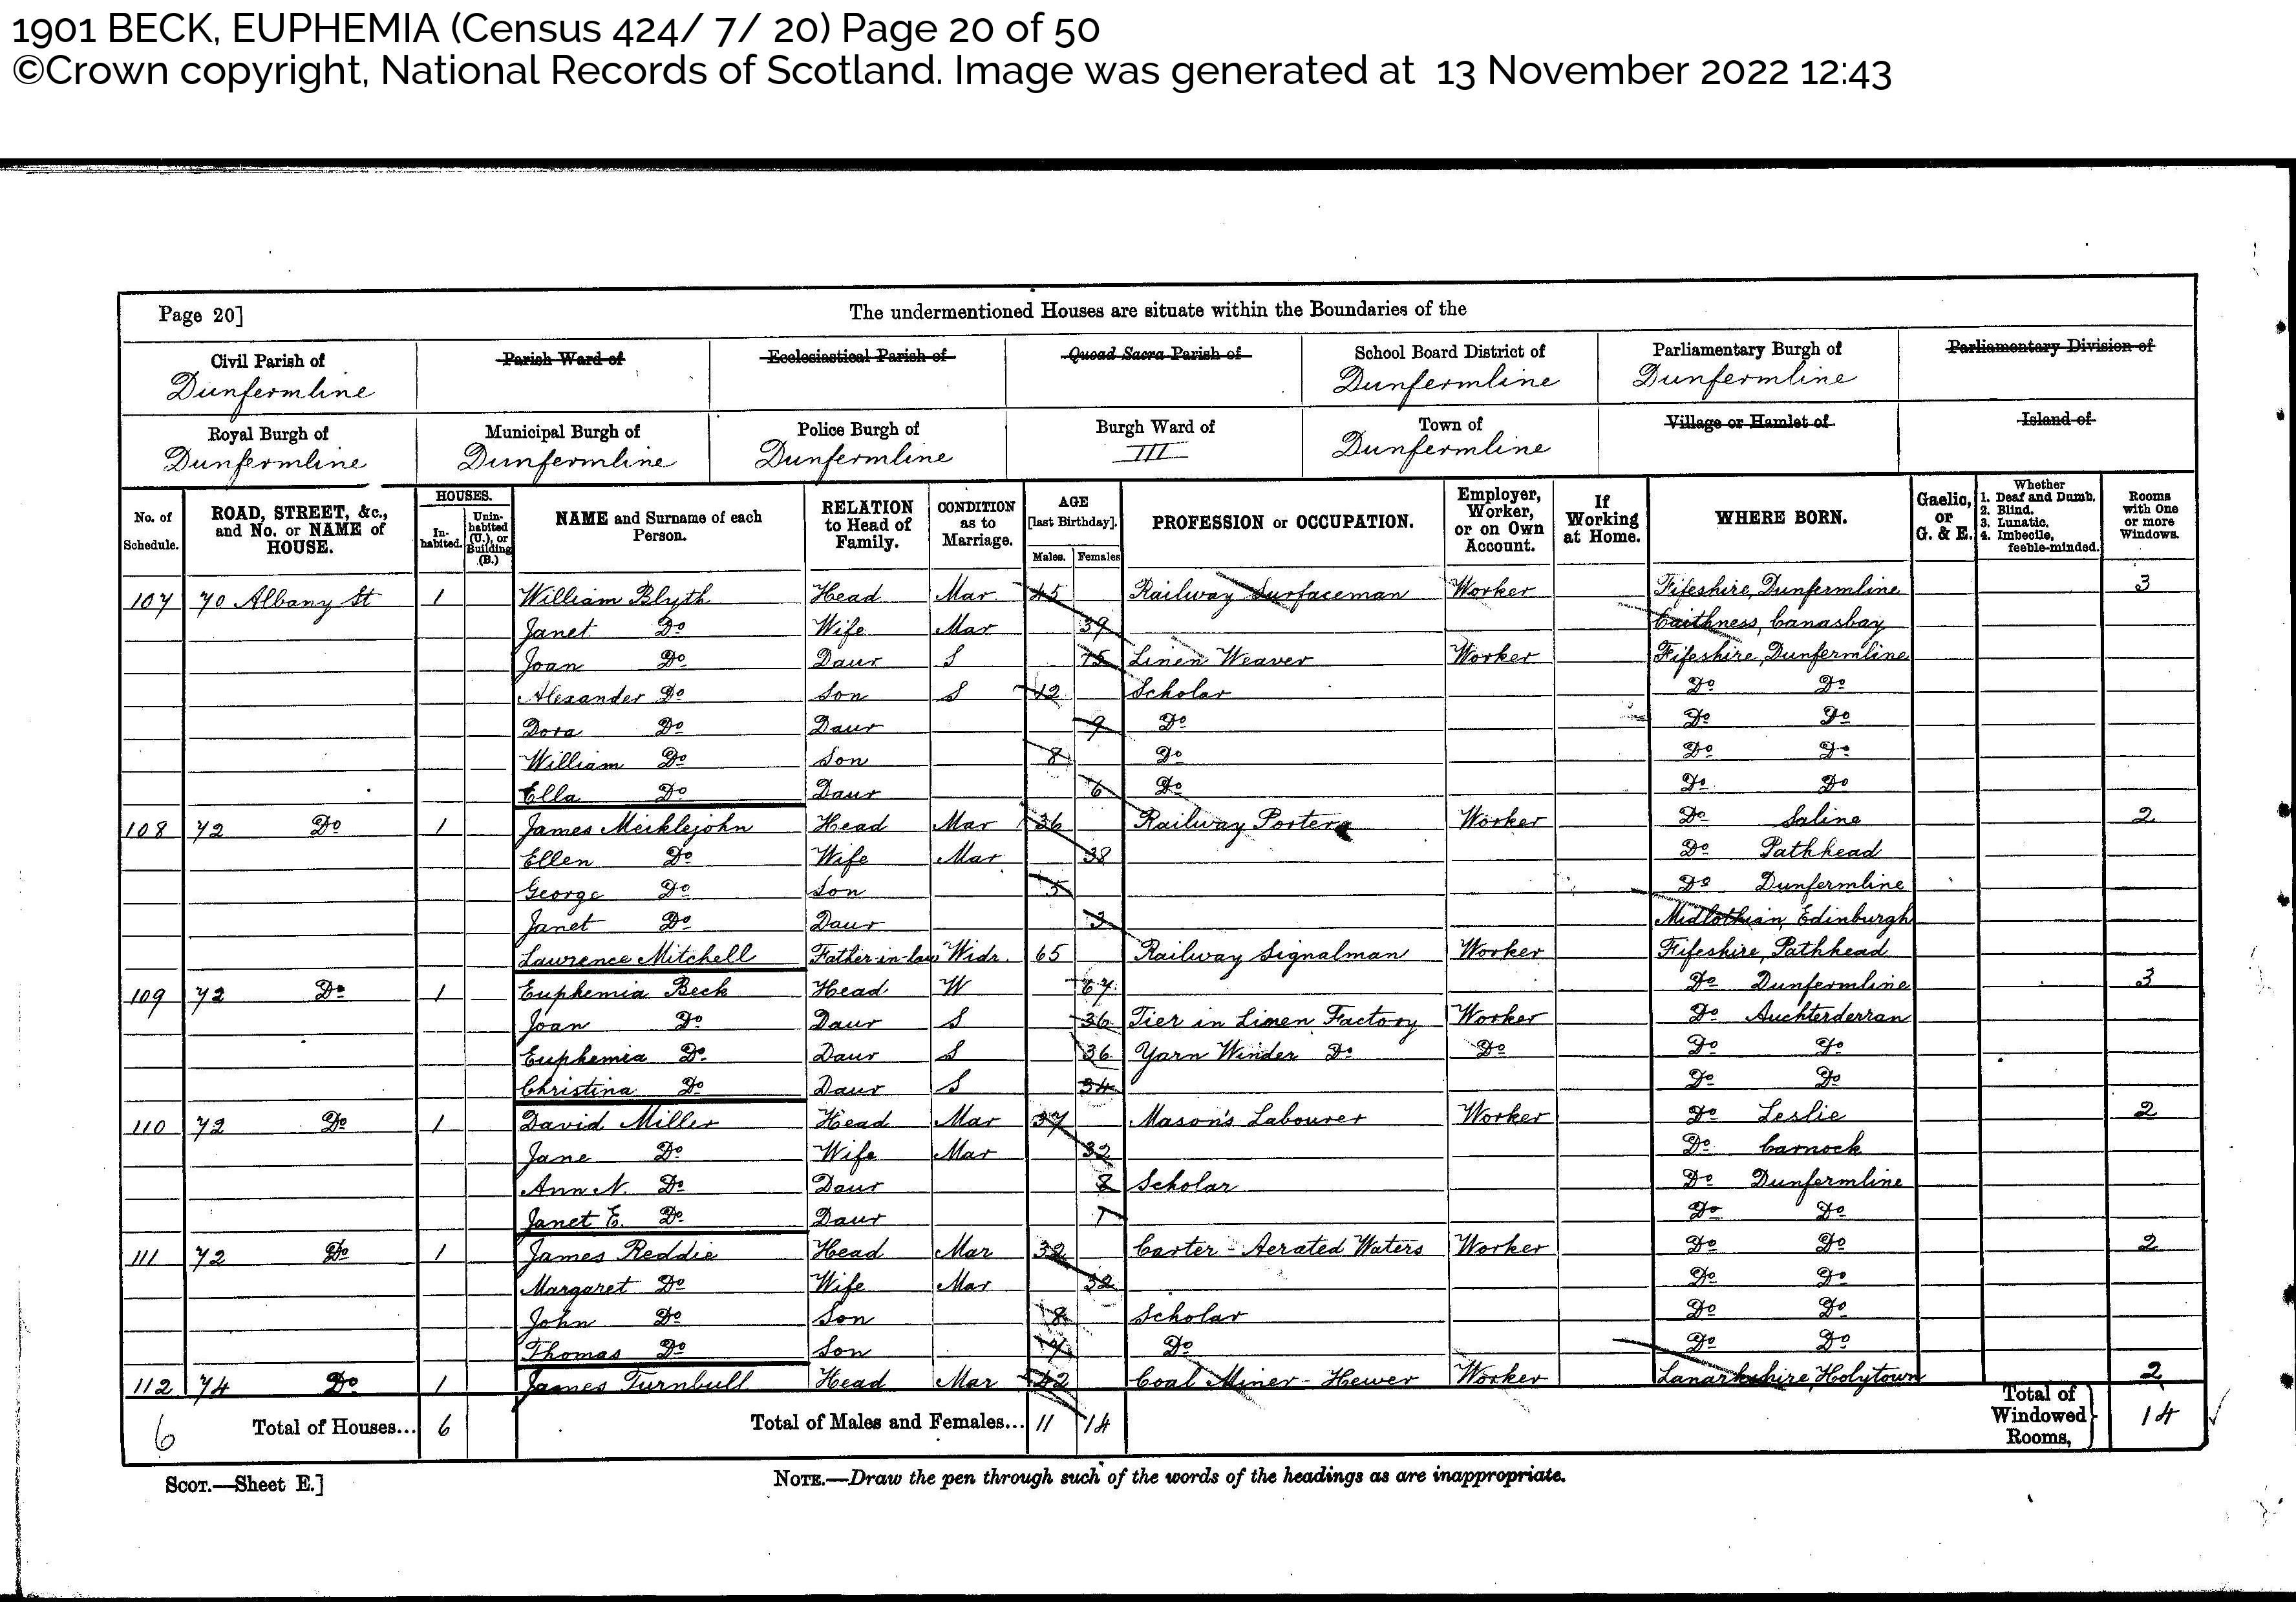 1901 BECK, EUPHEMIA (Census 424/ 7/ 20) Page 20 of 50
©Crown copyright, National Records of Scotland. Image was generated at 13 November 2022 12:43
Page 20]
The undermentioned Houses are situate within the Boundaries of the
Civil Parish of Parish Ward of Ecclesiastical Parish of Quoad Sacra Parish of School Board District of Parliamentary Burgh of Parliamentary Division of
Dunfermline Dunfermline Dunfermline
Royal Burgh of Municipal Burgh of Police Burgh of Burgh Ward of Town of Village or Hamlet of Island of
Dunfermline Dunfermline Dunfermline III Dunfermline
No. of Schedule. ROAD, STREET, &c., and No. or NAME of HOUSE. HOUSES. Inhabited. Uninhabited (U.), or Building (B.) NAME and Surname of each Person. RELATION to Head of Family. CONDITION as to Marriage. AGE [last Birthday]. Males. Females PROFESSION or OCCUPATION. Employer, Worker, or on Own Account. If Working at Home. WHERE BORN. Gaelic, or G. & E. Whether 1. Deaf and Dumb. 2. Blind. 3. Lunatic. 4. Imbecile, feeble-minded. Rooms with One or more Windows.
107 70 Albany St 1 William Blyth Head Mar 45 Railway Surfaceman Worker Fifeshire, Dunfermline 3
Janet Do Wife Mar 39 Caithness, Canasbay
Joan Do Daur S 15 Linen Weaver Worker Fifeshire, Dunfermline
Alexander Do Son S 12 Scholar Do Do
Dora Do Daur 9 Do Do Do
William Do Son 8 Do Do Do
Ella Do Daur 6 Do Do Do
108 72 Do 1 James Meiklejohn Head Mar 36 Railway Porter Worker Do Saline 2
Ellen Do Wife Mar 38 Do Pathhead
George Do Son 5 Do Dunfermline
Janet Do Daur 3 Midlothian, Edinburgh
Lawrence Mitchell Father-in-law Widr. 65 Railway Signalman Worker Fifeshire, Pathhead
109 72 Do 1 Euphemia Beck Head W 67 Do Dunfermline 3
Joan Do Daur S 36 Tier in Linen Factory Worker Do Auchterderran
Euphemia Do Daur S 36 Yarn Winder Do Do Do Do
Christina Do Daur S 34 Do Do
110 72 Do 1 David Miller Head Mar 37 Mason's Labourer Worker Do Leslie 2
Jane Do Wife Mar 32 Do Carnock
Ann N. Do Daur 8 Scholar Do Dunfermline
Janet E. Do Daur 1 Do Do
111 72 Do 1 James Reddie Head Mar 32 Carter - Aerated Waters Worker Do Do 2
Margaret Do Wife Mar 32 Do Do
John Do Son 8 Scholar Do Do
Thomas Do Son 7 Do Do Do
112 74 Do 1 James Turnbull Head Mar 42 Coal Miner - Hewer Worker Lanarkshire, Holytown 2
6 Total of Houses... 6 Total of Males and Females... 11 14 Total of Windowed Rooms, 14
SCOT.—Sheet E.]
NOTE.—Draw the pen through such of the words of the headings as are inappropriate.